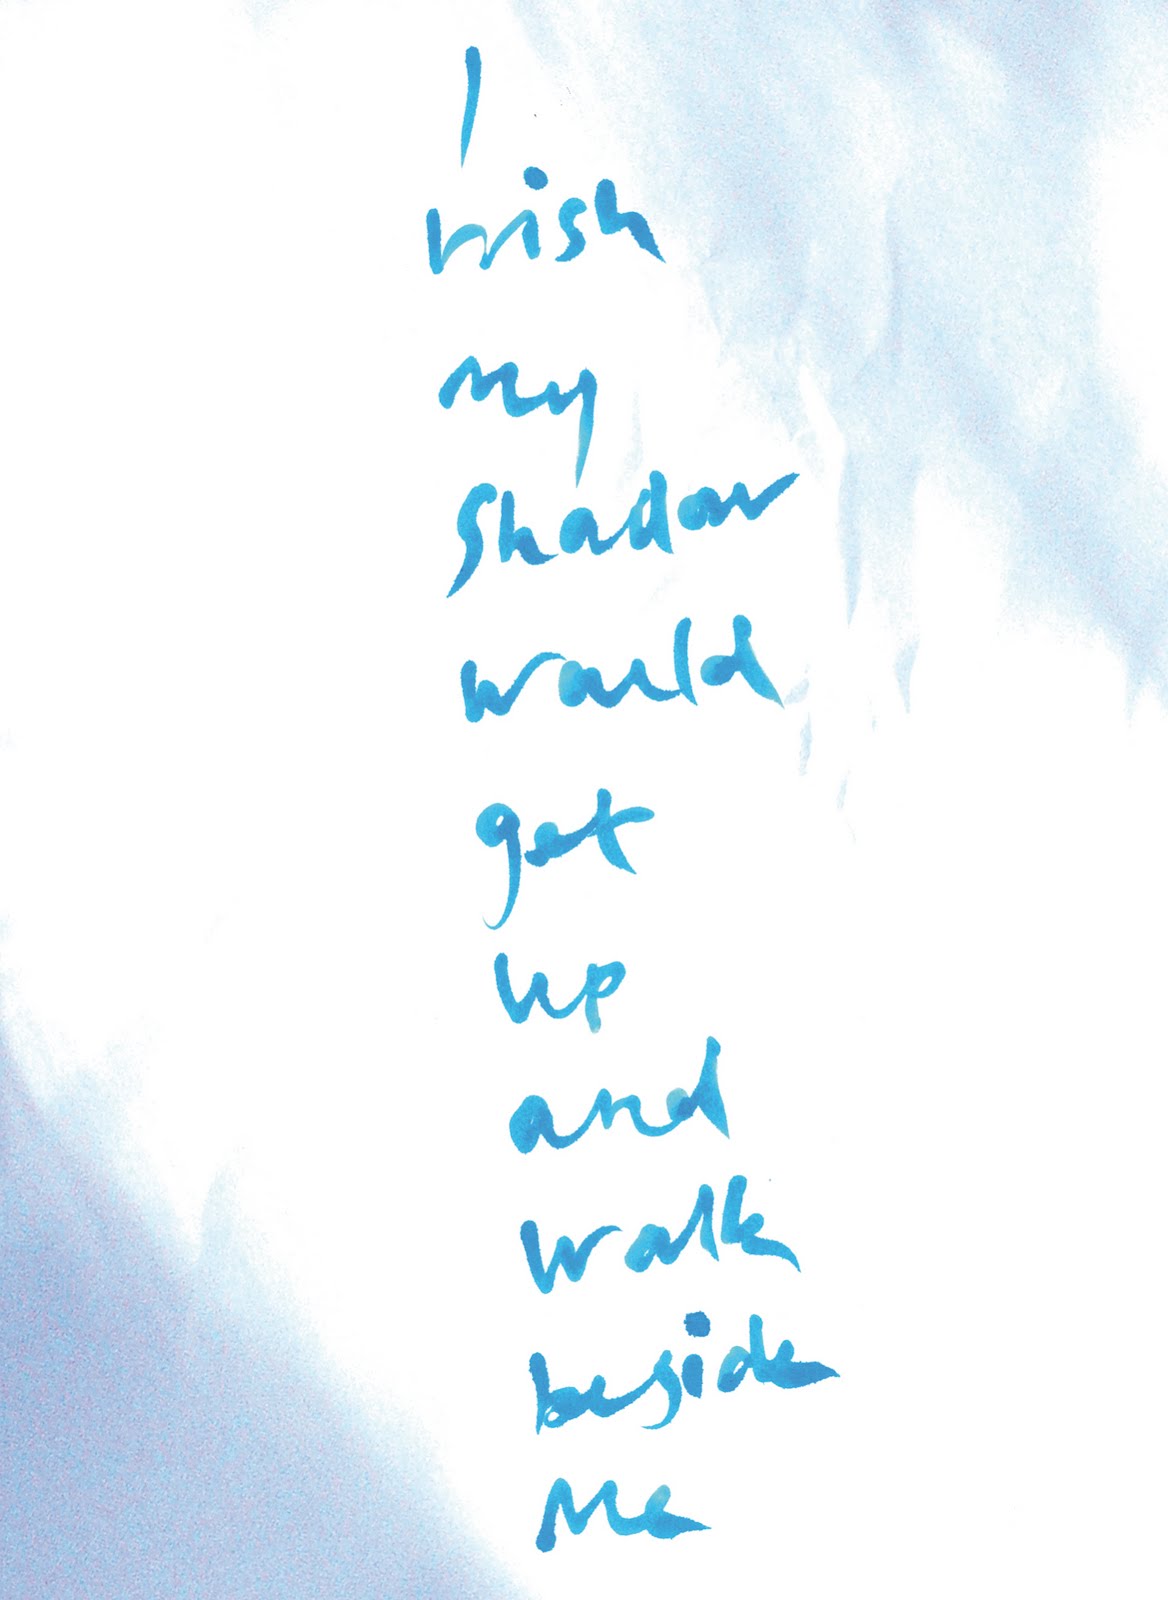 I
wish
my
Shadow
would
get
up
and
walk
beside
Me